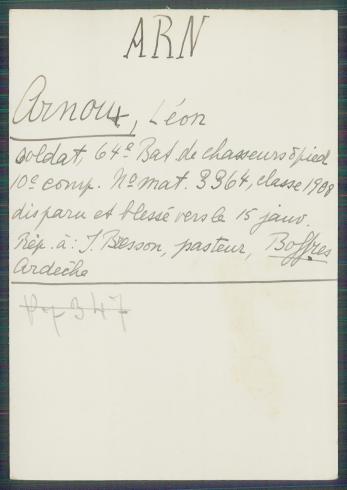 ARN
Arnoux, Léon
soldat, 64e Bat. de chasseurs à pied
10e comp. No mat. 3364, classe 1908
disparu et blessé vers le 15 janv.
Rép. à: J. Besson, pasteur, Boffres
Ardèche
347